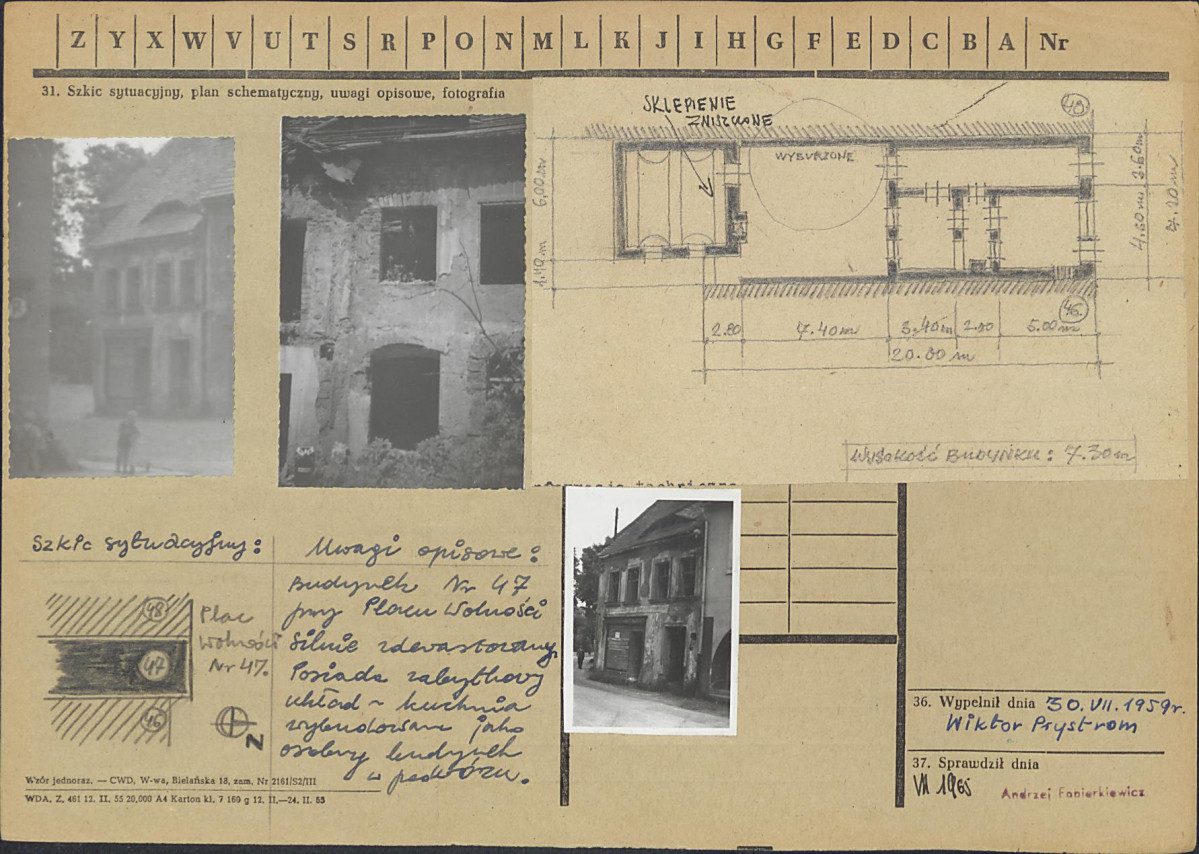 Z Y X W V U T S R P O N M L K J I H G F E D C B A Nr
31. Szkic sytuacyjny, plan schematyczny, uwagi opisowe, fotografia
SKLEPIENIE
ZNISZCZONE
WYBURZONE
48.
46.
6,00 m
1.40 m
2.60 m
4.60 m
2.80
7.40 m
3.40 m
2.00
5.00 m
20.00 m
Wysokość Budynku: 7.30 m
Szkic sytuacyjny:
48
47
46
Plac
Wolności
Nr 47.
N
Uwagi opisowe:
Budynek Nr 47
przy Placu Wolności
silnie zdewastowany.
Posiada zabytkowy
układ - kuchnia
wybudowana jako
osobny budynek
w podwórzu.
36. Wypełnił dnia 30. VII. 1959 r.
Wiktor Prystrom
37. Sprawdził dnia
VII 1965
Andrzej Fonierkiewicz
Wzór jednoraz. — CWD, W-wa, Bielańska 18, zam. Nr 2161/S2/III
WDA, Z. 461 12. II. 55 20.000 A4 Karton kl. 7 160 g 12. II.—24. II. 55